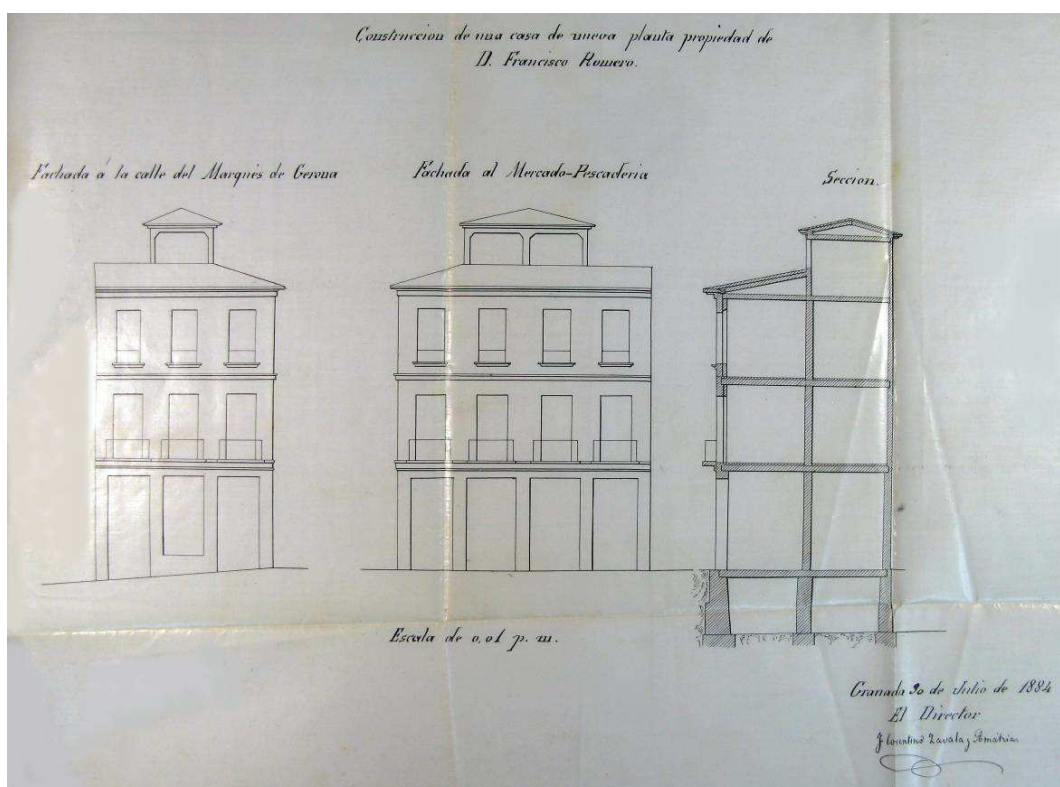 Construccion de una casa de nueva planta propiedad de
D. Francisco Romero.
Fachada á la calle del Marqués de Gerona
Fachada al Mercado-Pescaderia
Seccion.
Escala de 0,01 p. m.
Granada 30 de Julio de 1884
El Director
Florentino Zavala y